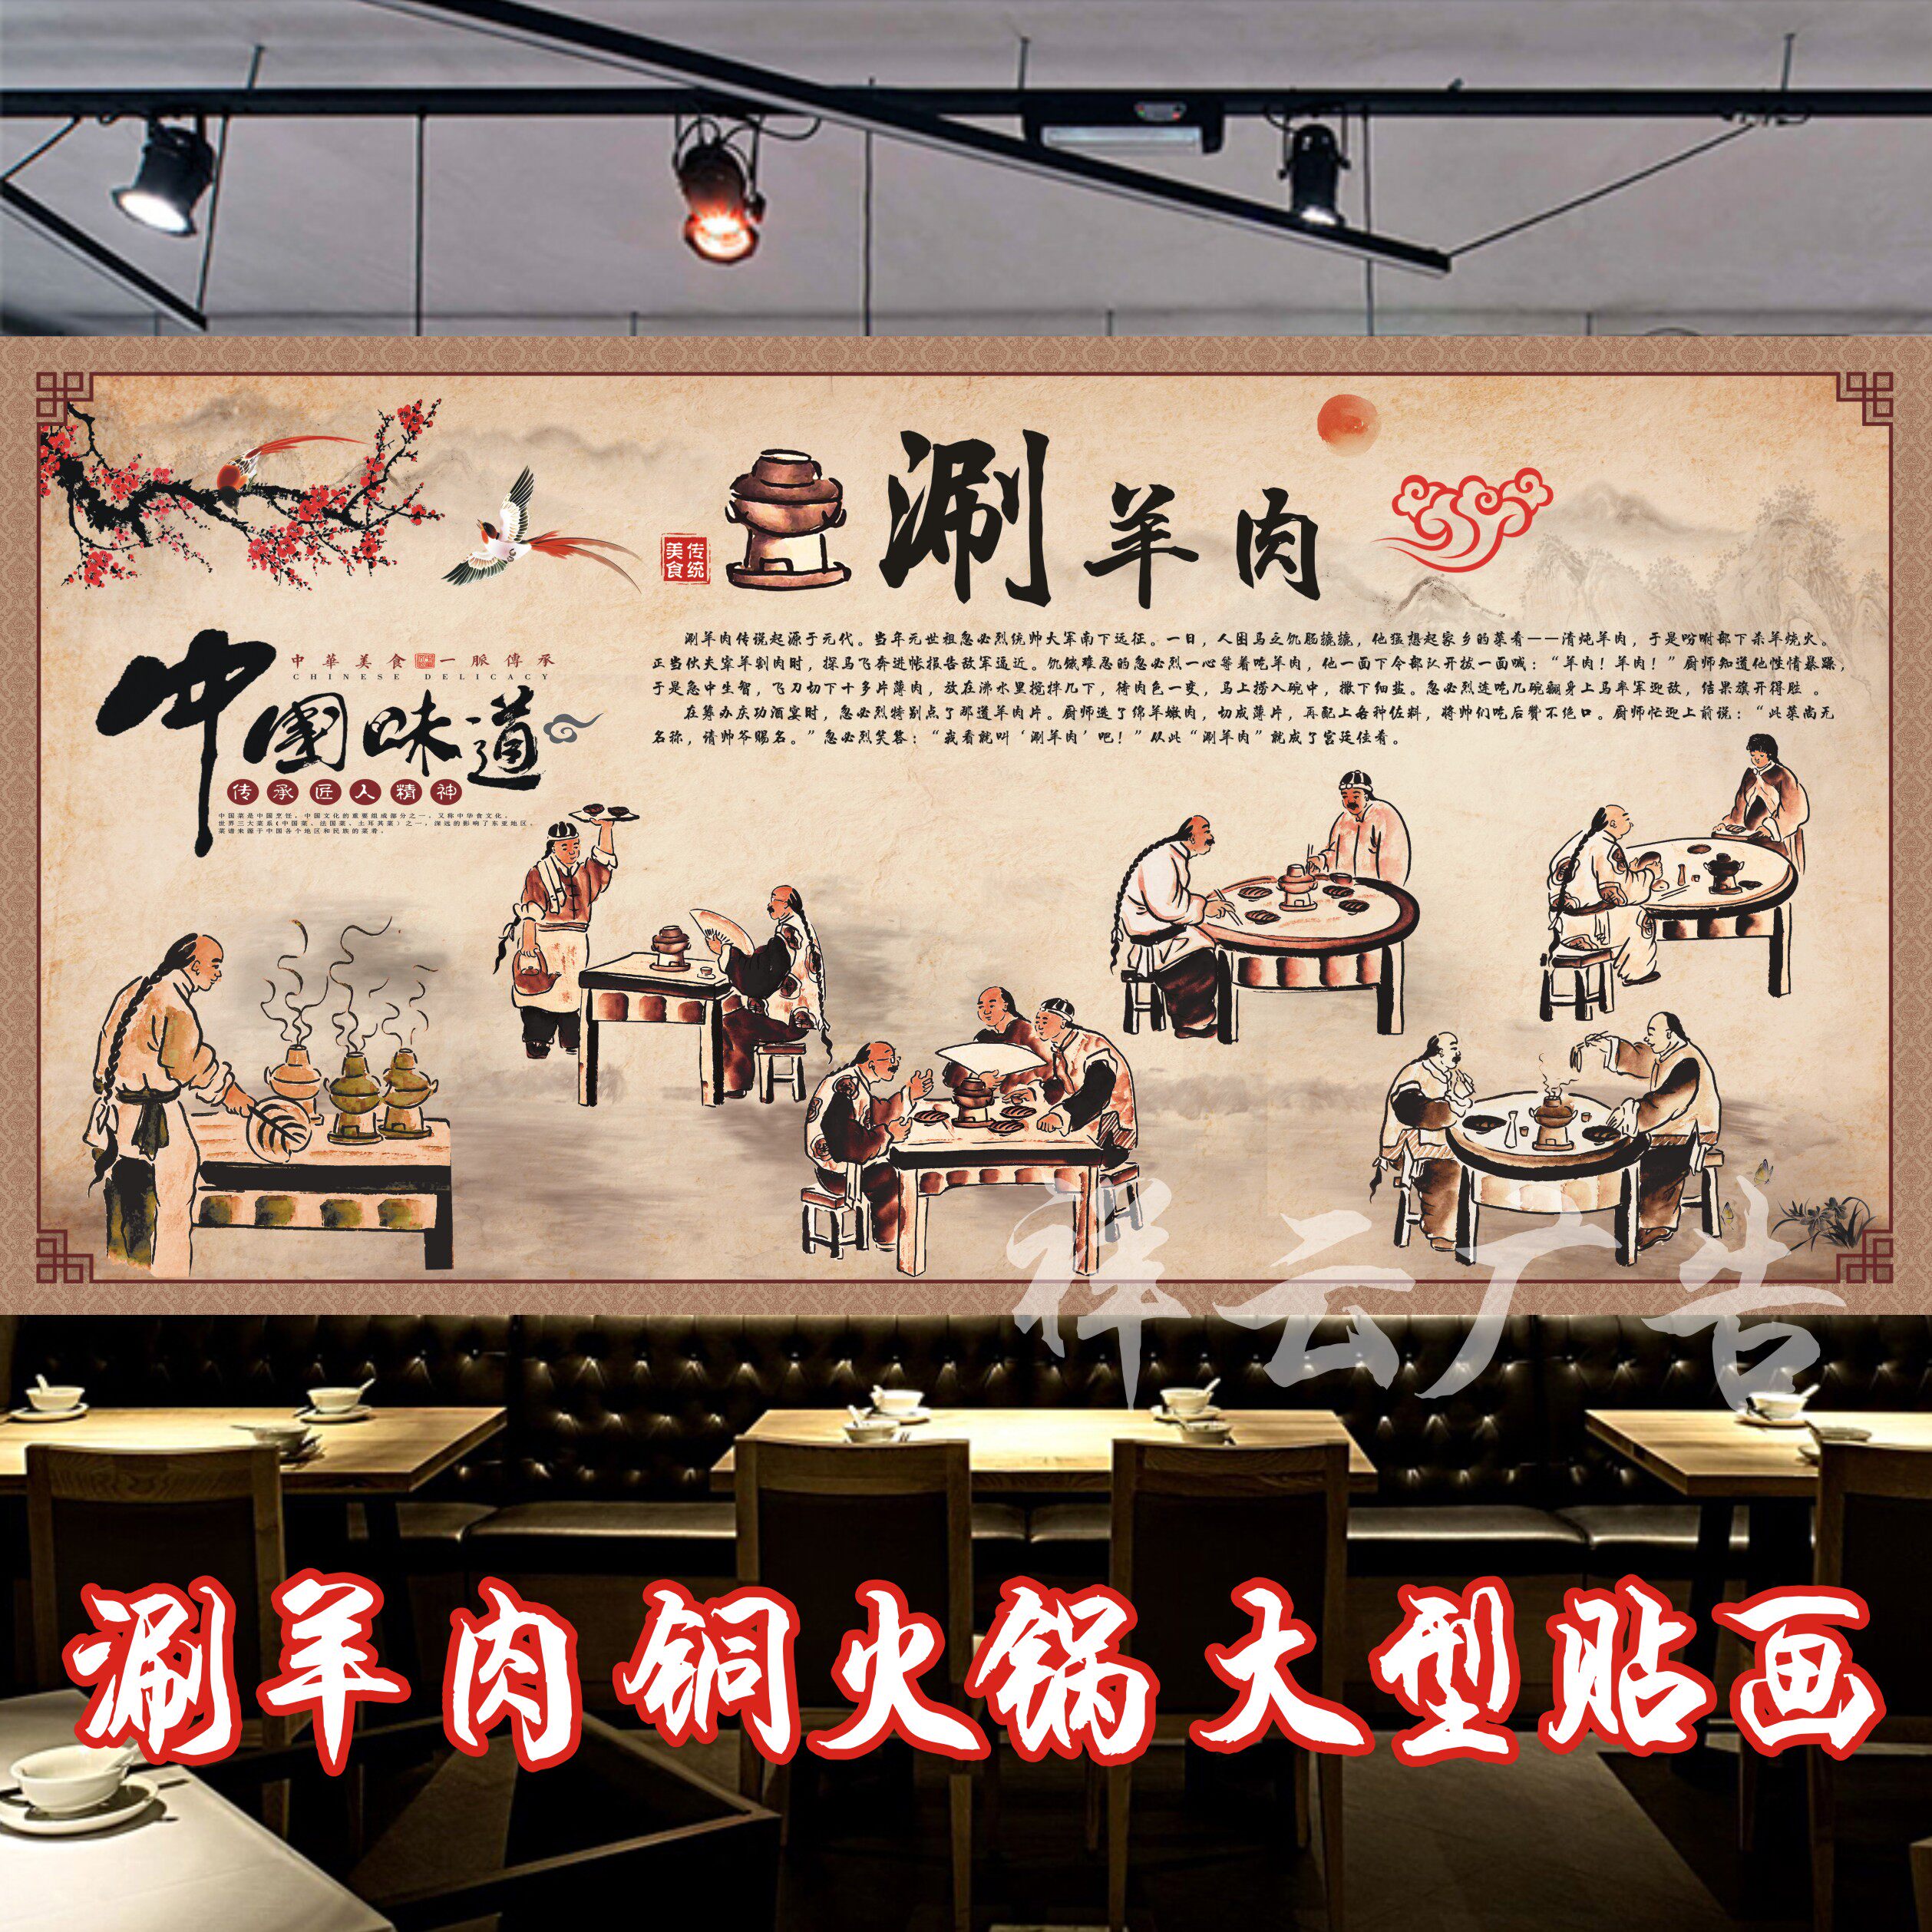 涮羊肉
传统
美食
涮羊肉传说起源于元代。当年元世祖忽必烈统帅大军南下远征。一日，人困马乏饥肠辘辘，他猛想起家乡的菜肴——清炖羊肉，于是吩咐部下杀羊烧火。
正当伙夫宰羊割肉时，探马飞奔进帐报告敌军逼近。饥饿难忍的忽必烈一心等着吃羊肉，他一面下令部队开拔一面喊：“羊肉！羊肉！”厨师知道他性情暴躁，
于是急中生智，飞刀切下十多片薄肉，放在沸水里搅拌几下，待肉色一变，马上捞入碗中，撒下细盐。忽必烈连吃几碗翻身上马率军迎敌，结果旗开得胜 。
在筹办庆功酒宴时，忽必烈特别点了那道羊肉片。厨师选了绵羊嫩肉，切成薄片，再配上各种佐料，将帅们吃后赞不绝口。厨师忙迎上前说：“此菜尚无
名称，请帅爷赐名。”忽必烈笑答：“我看就叫‘涮羊肉’吧！”从此“涮羊肉”就成了宫廷佳肴。
中華美食 一脈傳承
CHINESE DELICACY
中国味道
传承匠人精神
中国菜是中国烹饪，中国文化的重要组成部分之一，又称中华食文化，
世界三大菜系(中国菜、法国菜、土耳其菜)之一，深远的影响了东亚地区。
菜谱来源于中国各个地区和民族的菜肴。
祥云广告
涮羊肉铜火锅大型贴画